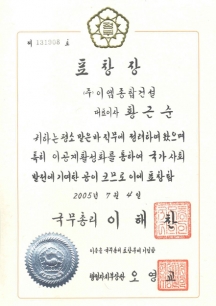 제 131998 호
표창장
(주)이엠종합건설
대표이사 황근순
귀하는 평소 맡은바 직무에 정려하여 왔으며
특히 이공계활성화를 통하여 국가 사회
발전에 기여한 공이 크므로 이에 표창함
2005년 7월 4일
국무총리 이해찬
이 증을 국무총리 표창부에 기입함
행정자치부장관 오영교